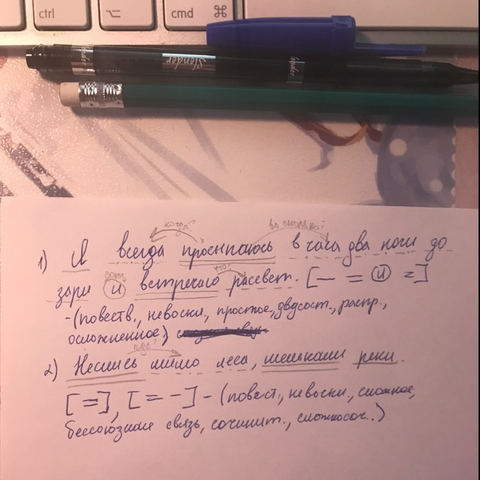 ctrl
cmd ⌘
Slender
1) Я всегда просыпаюсь в часа два ночи до
зари и встречаю расвет. [— = и =]
- (повеств., невоскл., простое, двусост., распр.,
осложненное)
2) Неслись мимо леса, мелькали реки.
[=], [= -] - (повест., невоскл., сложное,
бессоюзная связь, сочинит., сложносоч.)